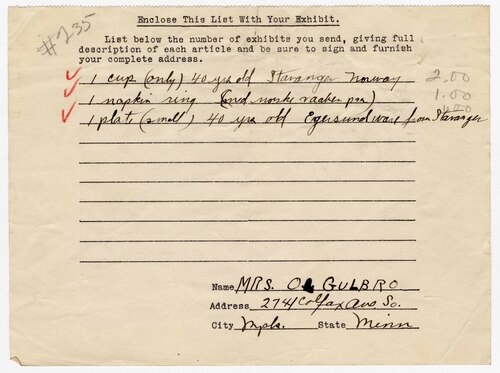 #235
Enclose This List With Your Exhibit.
List below the number of exhibits you send, giving full
description of each article and be sure to sign and furnish
your complete address.
1 cup (only) 40 yrs old Stavanger Norway 2.00
1 napkin ring (med norske vaaben paa) 1.00
1 plate (small) 40 yrs old Egersund ware from Stavanger
Name MRS. O GULBRO
Address 2741 Colfax Ave So.
City Mpls. State Minn